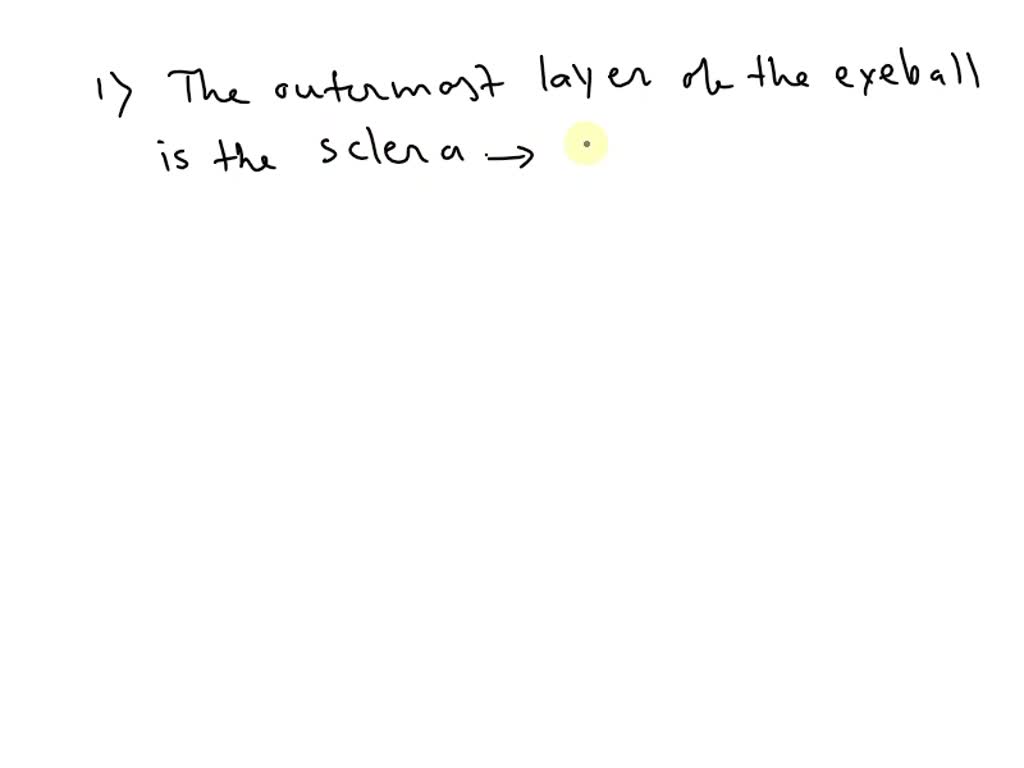 1) The outermost layer of the eyeball
is the sclera →